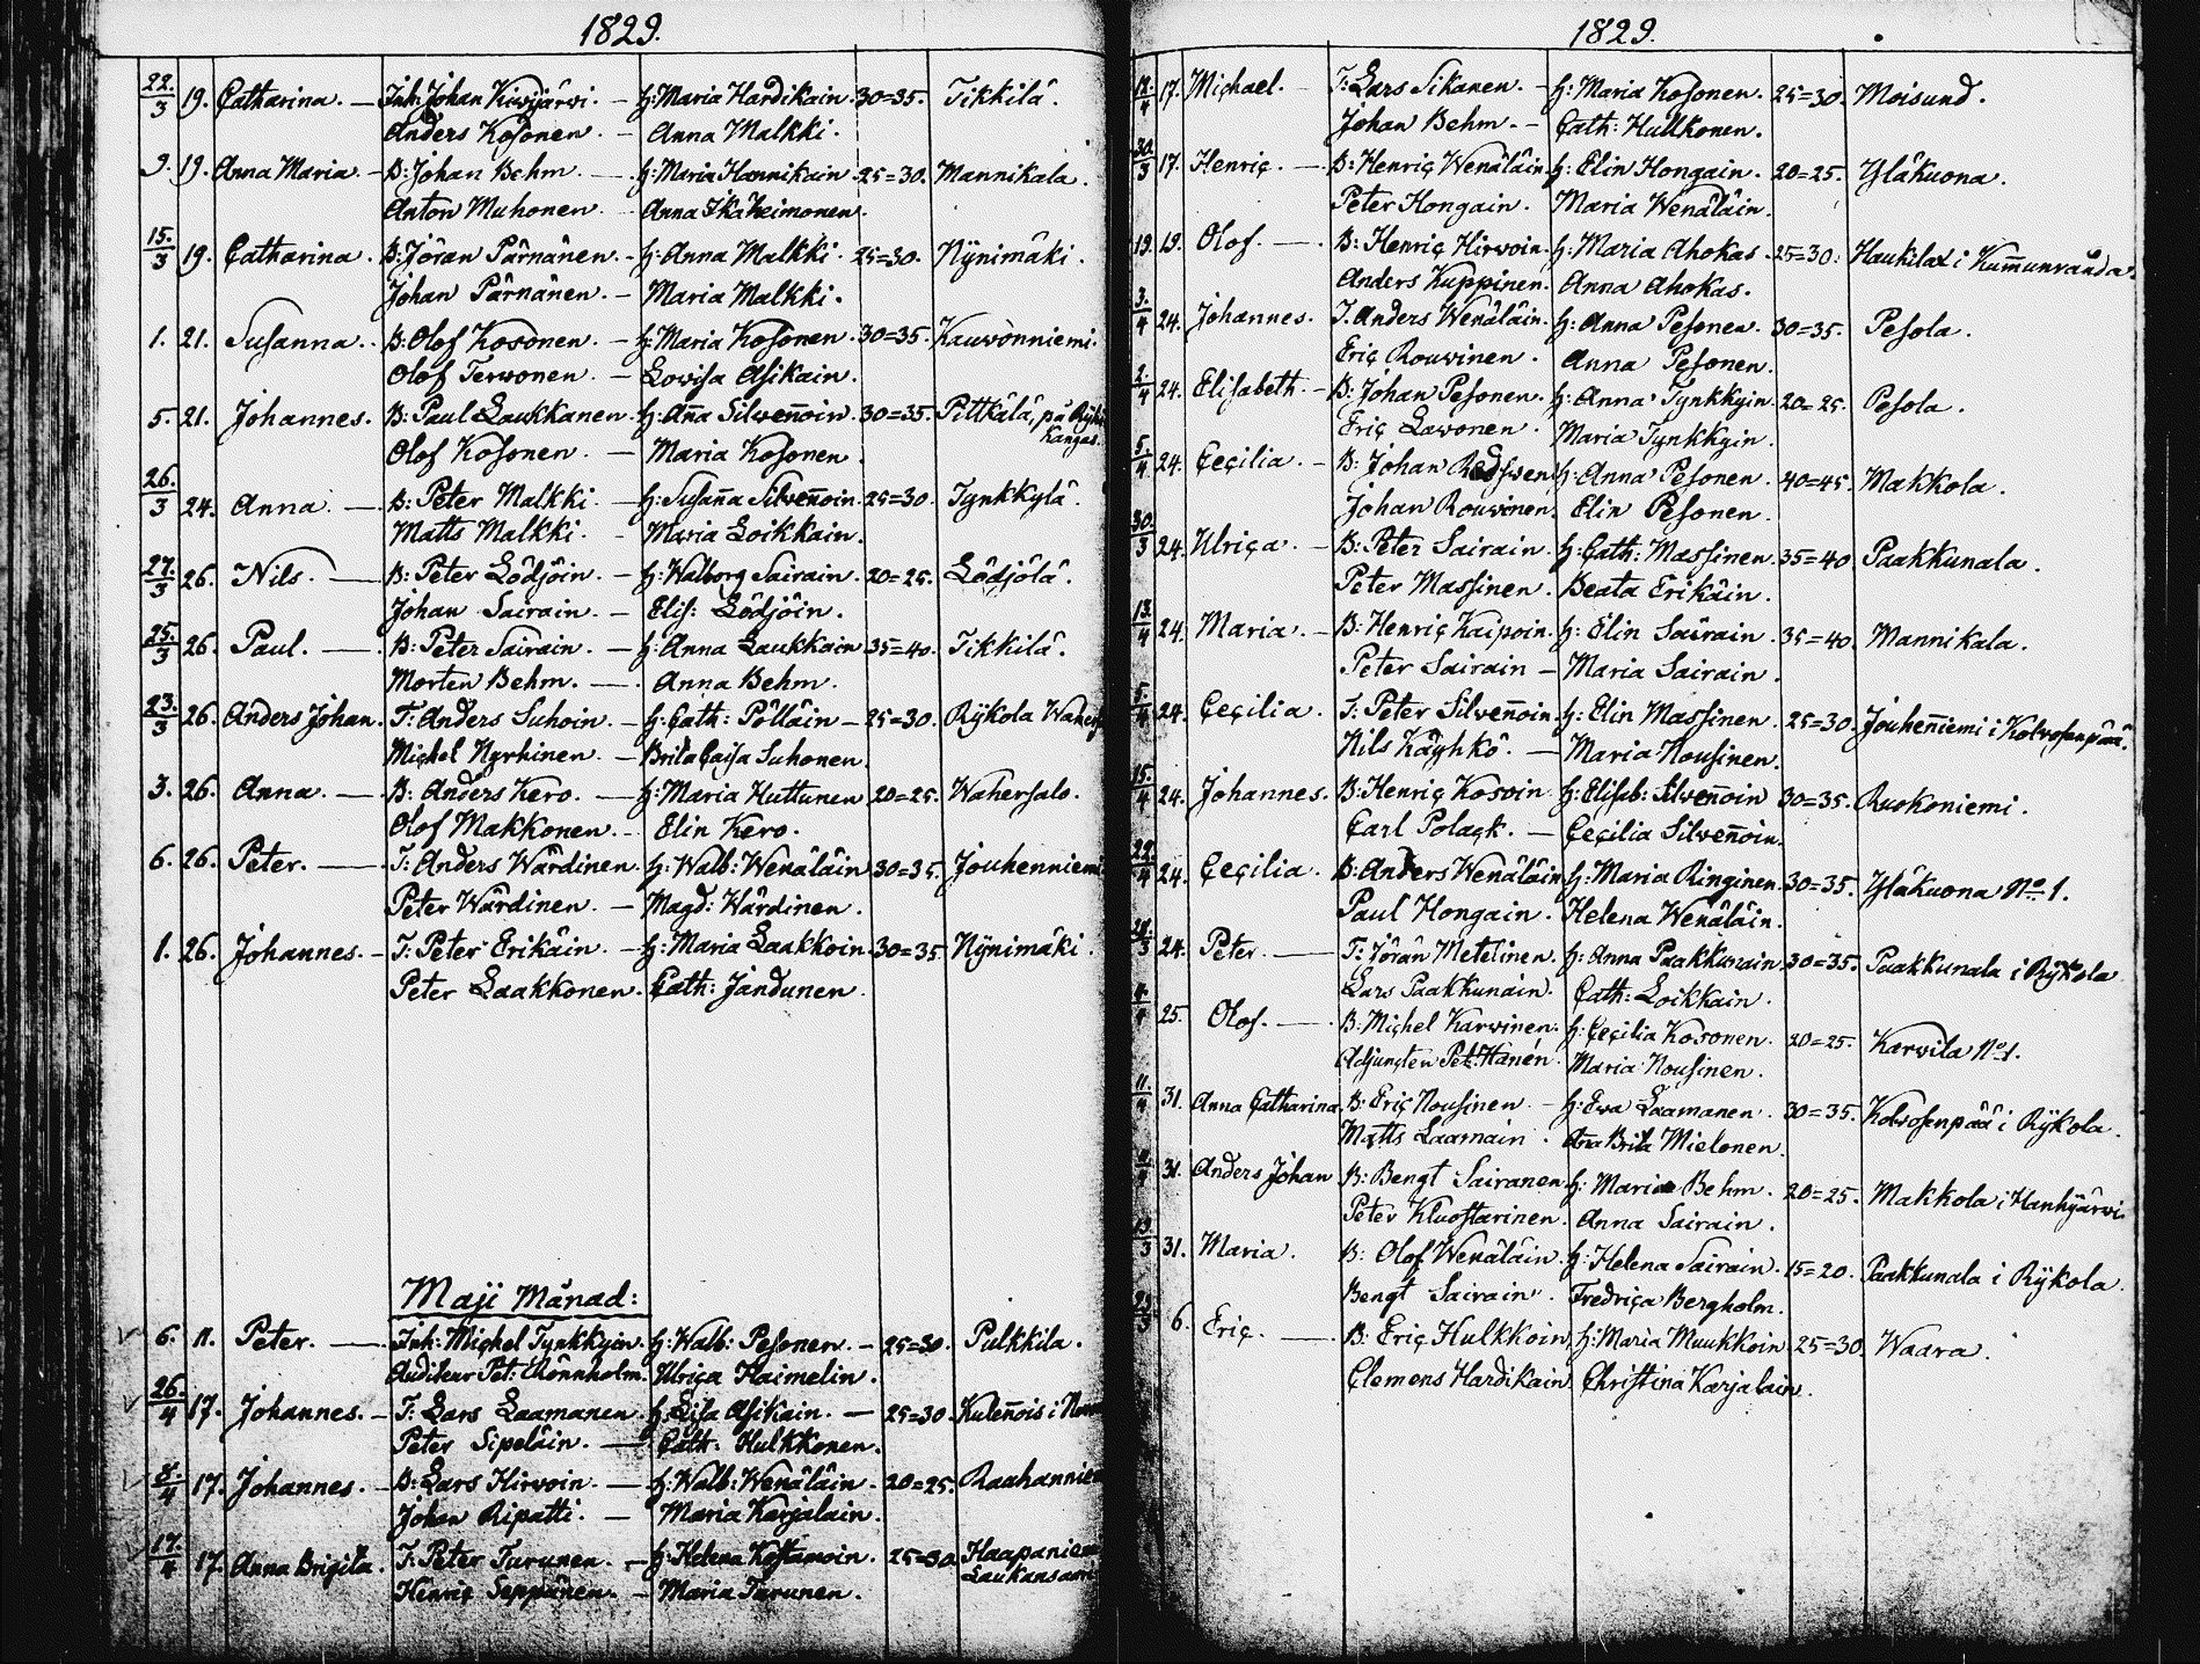 1829.
22./3 19. Catharina. — Inh: Johan Kiwijärwi. — H: Maria Hardikain. 30=35. Tikkilä.
Anders Kosonen. — Anna Malkki.
9. 19. Anna Maria. — B: Johan Behm. — H: Maria Hannikain. 25=30. Mannikala.
Anton Muhonen. Anna Ikäheimonen.
15./3 19. Catharina. B: Jöran Pärnänen. — H: Anna Malkki. 25=30. Nÿnimäki.
Johan Pärnänen. — Maria Malkki.
1. 21. Susanna. B: Olof Kosonen. — H: Maria Kosonen. 30=35. Kauwonniemi.
Olof Terwonen. — Lowisa Asikain.
5. 21. Johannes. B: Paul Laukkanen. H: Aña Silweñoin. 30=35. Pittkälä, på
Kangas.
Olof Kosonen. — Maria Kosonen.
26./3 24. Anna. — B: Peter Malkki. — H: Susaña Silweñoin. 25=30. Tynkkylä.
Matts Malkki. - Maria Loikkain.
27./3 26. Nils. — B: Peter Lödjöin. — H: Walborg Sairain. 20=25. Lödjölä.
Johan Sairain. — Elis: Lödjöin.
25./3 26. Paul. — B: Peter Sairain. — H: Anna Laukkain. 35=40. Tikkilä.
Morten Behm. — Anna Behm.
23./3 26. Anders Johan. T: Anders Suhoin. — H: Cath: Pölläin — 25=30. Rÿkola
Michel Nyrhinen — Brita Caisa Suhonen.
3. 26. Anna. — B: Anders Kero. — H: Maria Huttunen 20=25. Wahersalo.
Olof Makkonen. — Elin Kero.
6. 26. Peter. — T: Anders Wärdinen. H: Walb: Wenäläin 30=35. Jouhenniemi
Peter Wärdinen. — Magd: Wärdinen.
1. 26. Johannes. — T: Peter Erikäin. — H: Maria Laakkoin 30=35. Nÿnimäki.
Peter Laakkonen. Cath: Jandunen.
Maji Månad:
6. 11. Peter. — Inh: Michel Tynkkyin. H: Walb: Pesonen. — 25=30. Pulkkila.
Auditeur Pet: Mönnholm. Ulrica Haimelin.
26./4 17. Johannes. — T: Lars Laamanen. H: Lisa Asikain. — 25=30. Kuleñois i
Peter Sipeläin. — Cath: Hulkkonen.
8./4 17. Johannes. — B: Lars Hirwoin. — H: Walb: Wenäläin. 20=25. Raahanniemi
Johan Ripatti. — Maria Karjalain.
17./4 17. Anna Brigita. T: Peter Turunen. — H: Helena Kostamoin. 25=30. Haapaniemi
Laukansaari
Henric Seppänen. — Maria Turunen.
1829.
12./4 17. Michael. T: Lars Sikanen. — H: Maria Kosonen. 25=30. Moisund.
Johan Behm. — Cath: Hullkonen.
30./3 17. Henric. — B: Henric Wenäläin. H: Elin Hongain. 20=25. Yläkuona.
Peter Hongain. Maria Wenäläin.
19. 19. Olof. — B: Henric Hirwoin. H: Maria Ahokas. 25=30. Haukilax i Kum̄unranda.
Anders Kuppinen. Anna Ahokas.
3./4 24. Johannes. T. Anders Wenäläin. H: Anna Pesonen. 30=35. Pesola.
Eric Rouwinen. Anna Pesonen.
2./4 24. Elisabeth. — B: Johan Pesonen. H: Anna Tynkkyin 20=25. Pesola.
Eric Lawonen. Maria Tynkkyin.
5./4 24. Cecilia. — B: Johan Redswen H: Anna Pesonen. 40=45. Makkola.
Johan Rouwinen. Elin Pesonen.
30./3 24. Ulrica. — B: Peter Sairain. H: Cath: Massinen. 35=40. Paakkunala.
Peter Massinen. Beata Erikäin.
13./4 24. Maria. — B: Henric Kaipoin. H: Elin Sairain. 35=40. Mannikala.
Peter Sairain — Maria Sairain.
5./4 24. Cecilia. T: Peter Silweñoin. H: Elin Massinen. 25=30. Jouheñiemi i Kolwosenpää.
Nils Käyhkö. — Maria Nousinen.
15./4 24. Johannes. B: Henric Kosoin H: Elisab: Silweñoin 30=35. Ruokoniemi.
Carl Polack. — Cecilia Silweñoin.
22./4 24. Cecilia. B: Anders Wenäläin H: Maria Ringinen. 30=35. Yläkuona No 1.
Paul Hongain. Helena Wenäläin.
28./3 24. Peter. — T: Jöran Metelinen. H: Anna Paakkunain. 30=35. Paakkunala i Rÿkola
Lars Paakkunain. Cath: Loikkain.
4./4 25. Olof. — B: Michel Karwinen. H: Cecilia Kosonen. 20=25. Karwila No 1.
Adjuncten Pet: Hanén. Maria Nousinen.
11./4 31. Anna Catharina. B: Eric Nousinen. — H: Ewa Laamanen. 30=35. Kolwosenpää i Rÿkola.
Matts Laamain. Aña Brita Mielonen.
11./4 31. Anders Johan B: Bengt Sairanen. H: Maria Behm. 20=25. Makkola i Hanhijärwi
Peter Kluostarinen. Anna Sairain.
19./3 31. Maria. B: Olof Wenäläin. H: Helena Sairain. 15=20. Paakkunala i Rÿkola.
Bengt Sairain. Fredrica Bergholm.
23./3 6. Eric. — B: Eric Hulkkoin. H: Maria Muukkoin 25=30. Waara.
Clemens Hardikain. Christina Karjalain.